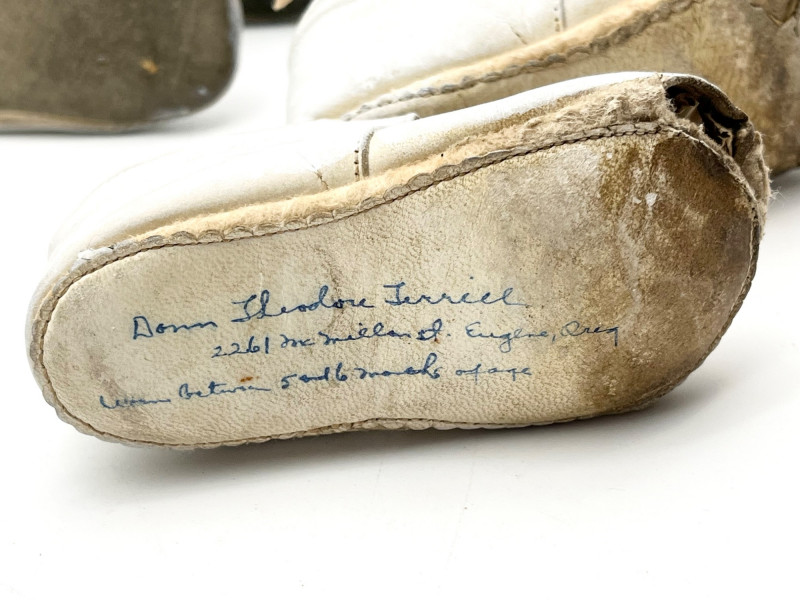 Donn Theodore Terriel
2261 McMillan st. Eugene, Oreg
Worn between 5 and 6 months of age